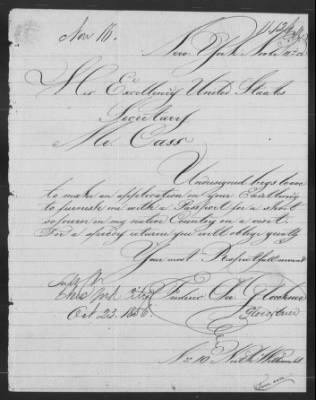 Nov 16.
New York
His Excellency United Staats
Secretary
Mr Cass
Undersigned begs leave
to make an application on your Excellency
to furnish me with a Passport for a short
sojourn in my native Country on a visit.
For a speedy return you will oblige greatly
Your most Respectfull
New York City
Oct 23. 1856
No 10 North William St